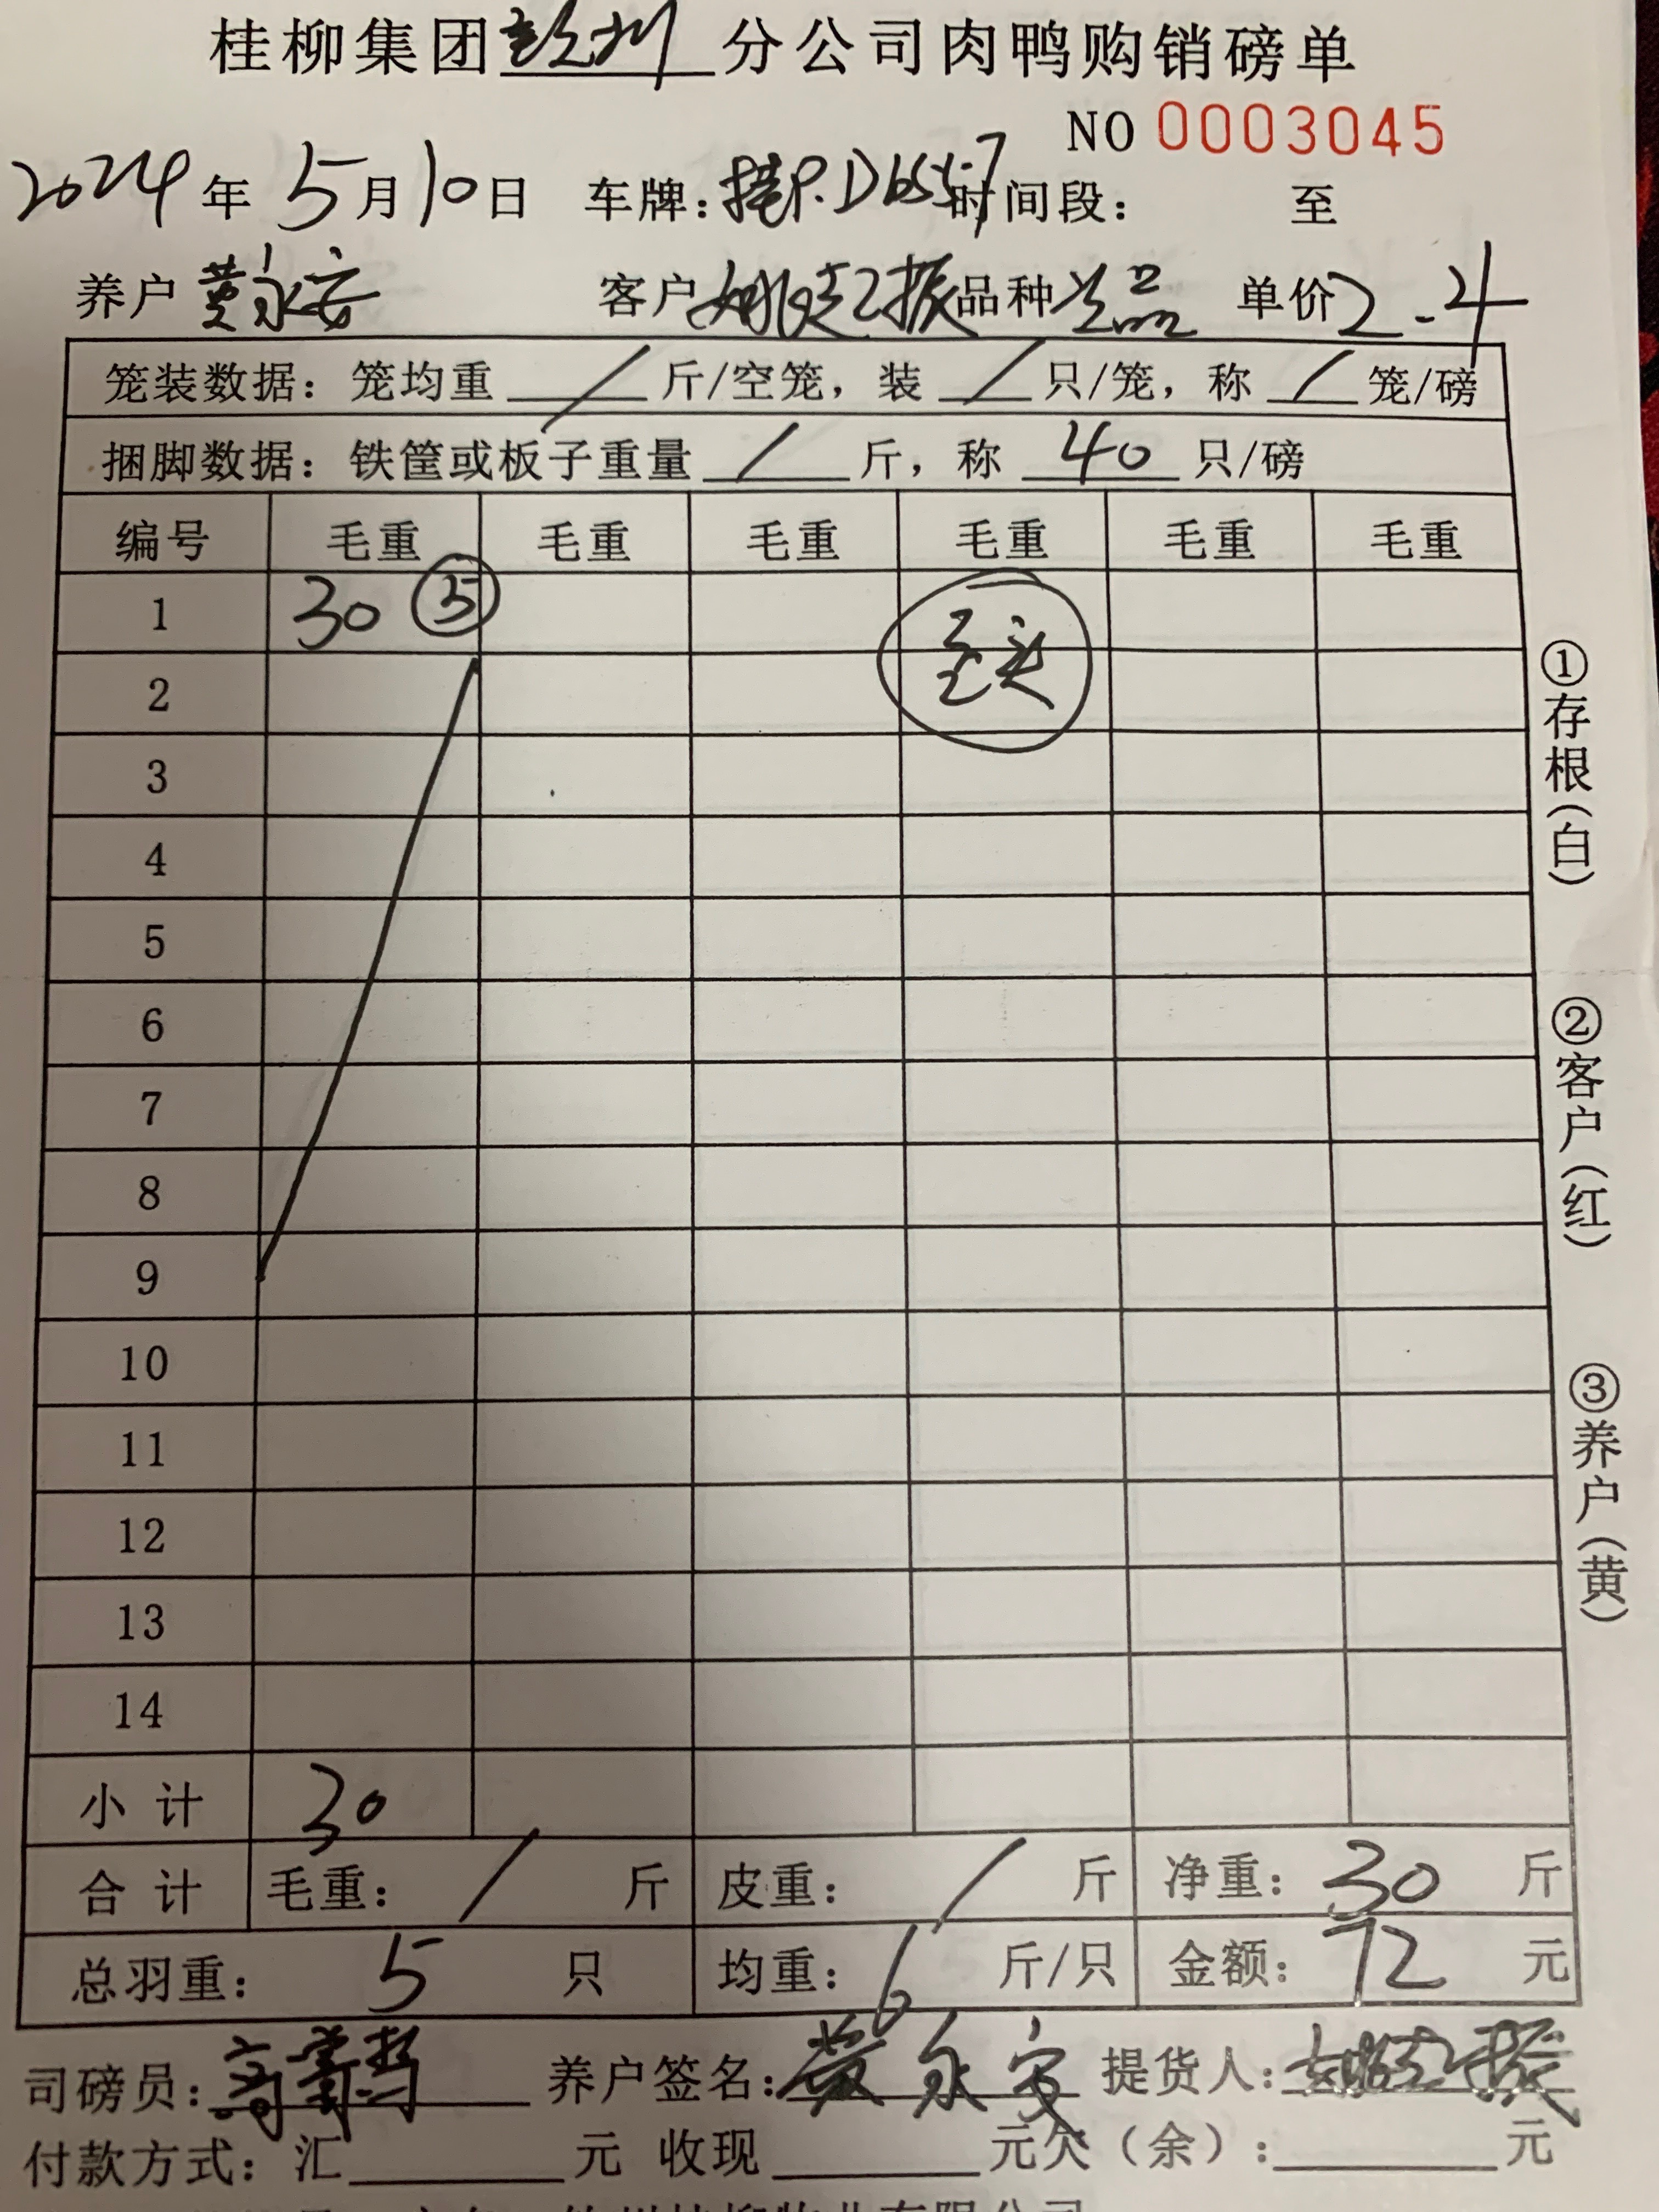 桂柳集团 分公司肉鸭购销磅单
NO 0003045
2024年5月10日 车牌: 时间段： 至
养户 黄永安 客户 姚起振 品种 次品 单价 2.4
笼装数据：笼均重 / 斤/空笼，装 / 只/笼，称 / 笼/磅
捆脚数据：铁筐或板子重量 / 斤，称 40 只/磅
编号 毛重 毛重 毛重 毛重 毛重 毛重
1 30 ⑤
2
3
4
5
6
7
8
9
10
11
12
13
14
小 计 30
合 计 毛重： / 斤 皮重： / 斤 净重：30 斤
总羽重： 5 只 均重：6 斤/只 金额：72 元
司磅员： 养户签名：黄永安 提货人：姚起振
付款方式：汇 元 收现 元欠（余）： 元
①存根（白）
②客户（红）
③养户（黄）